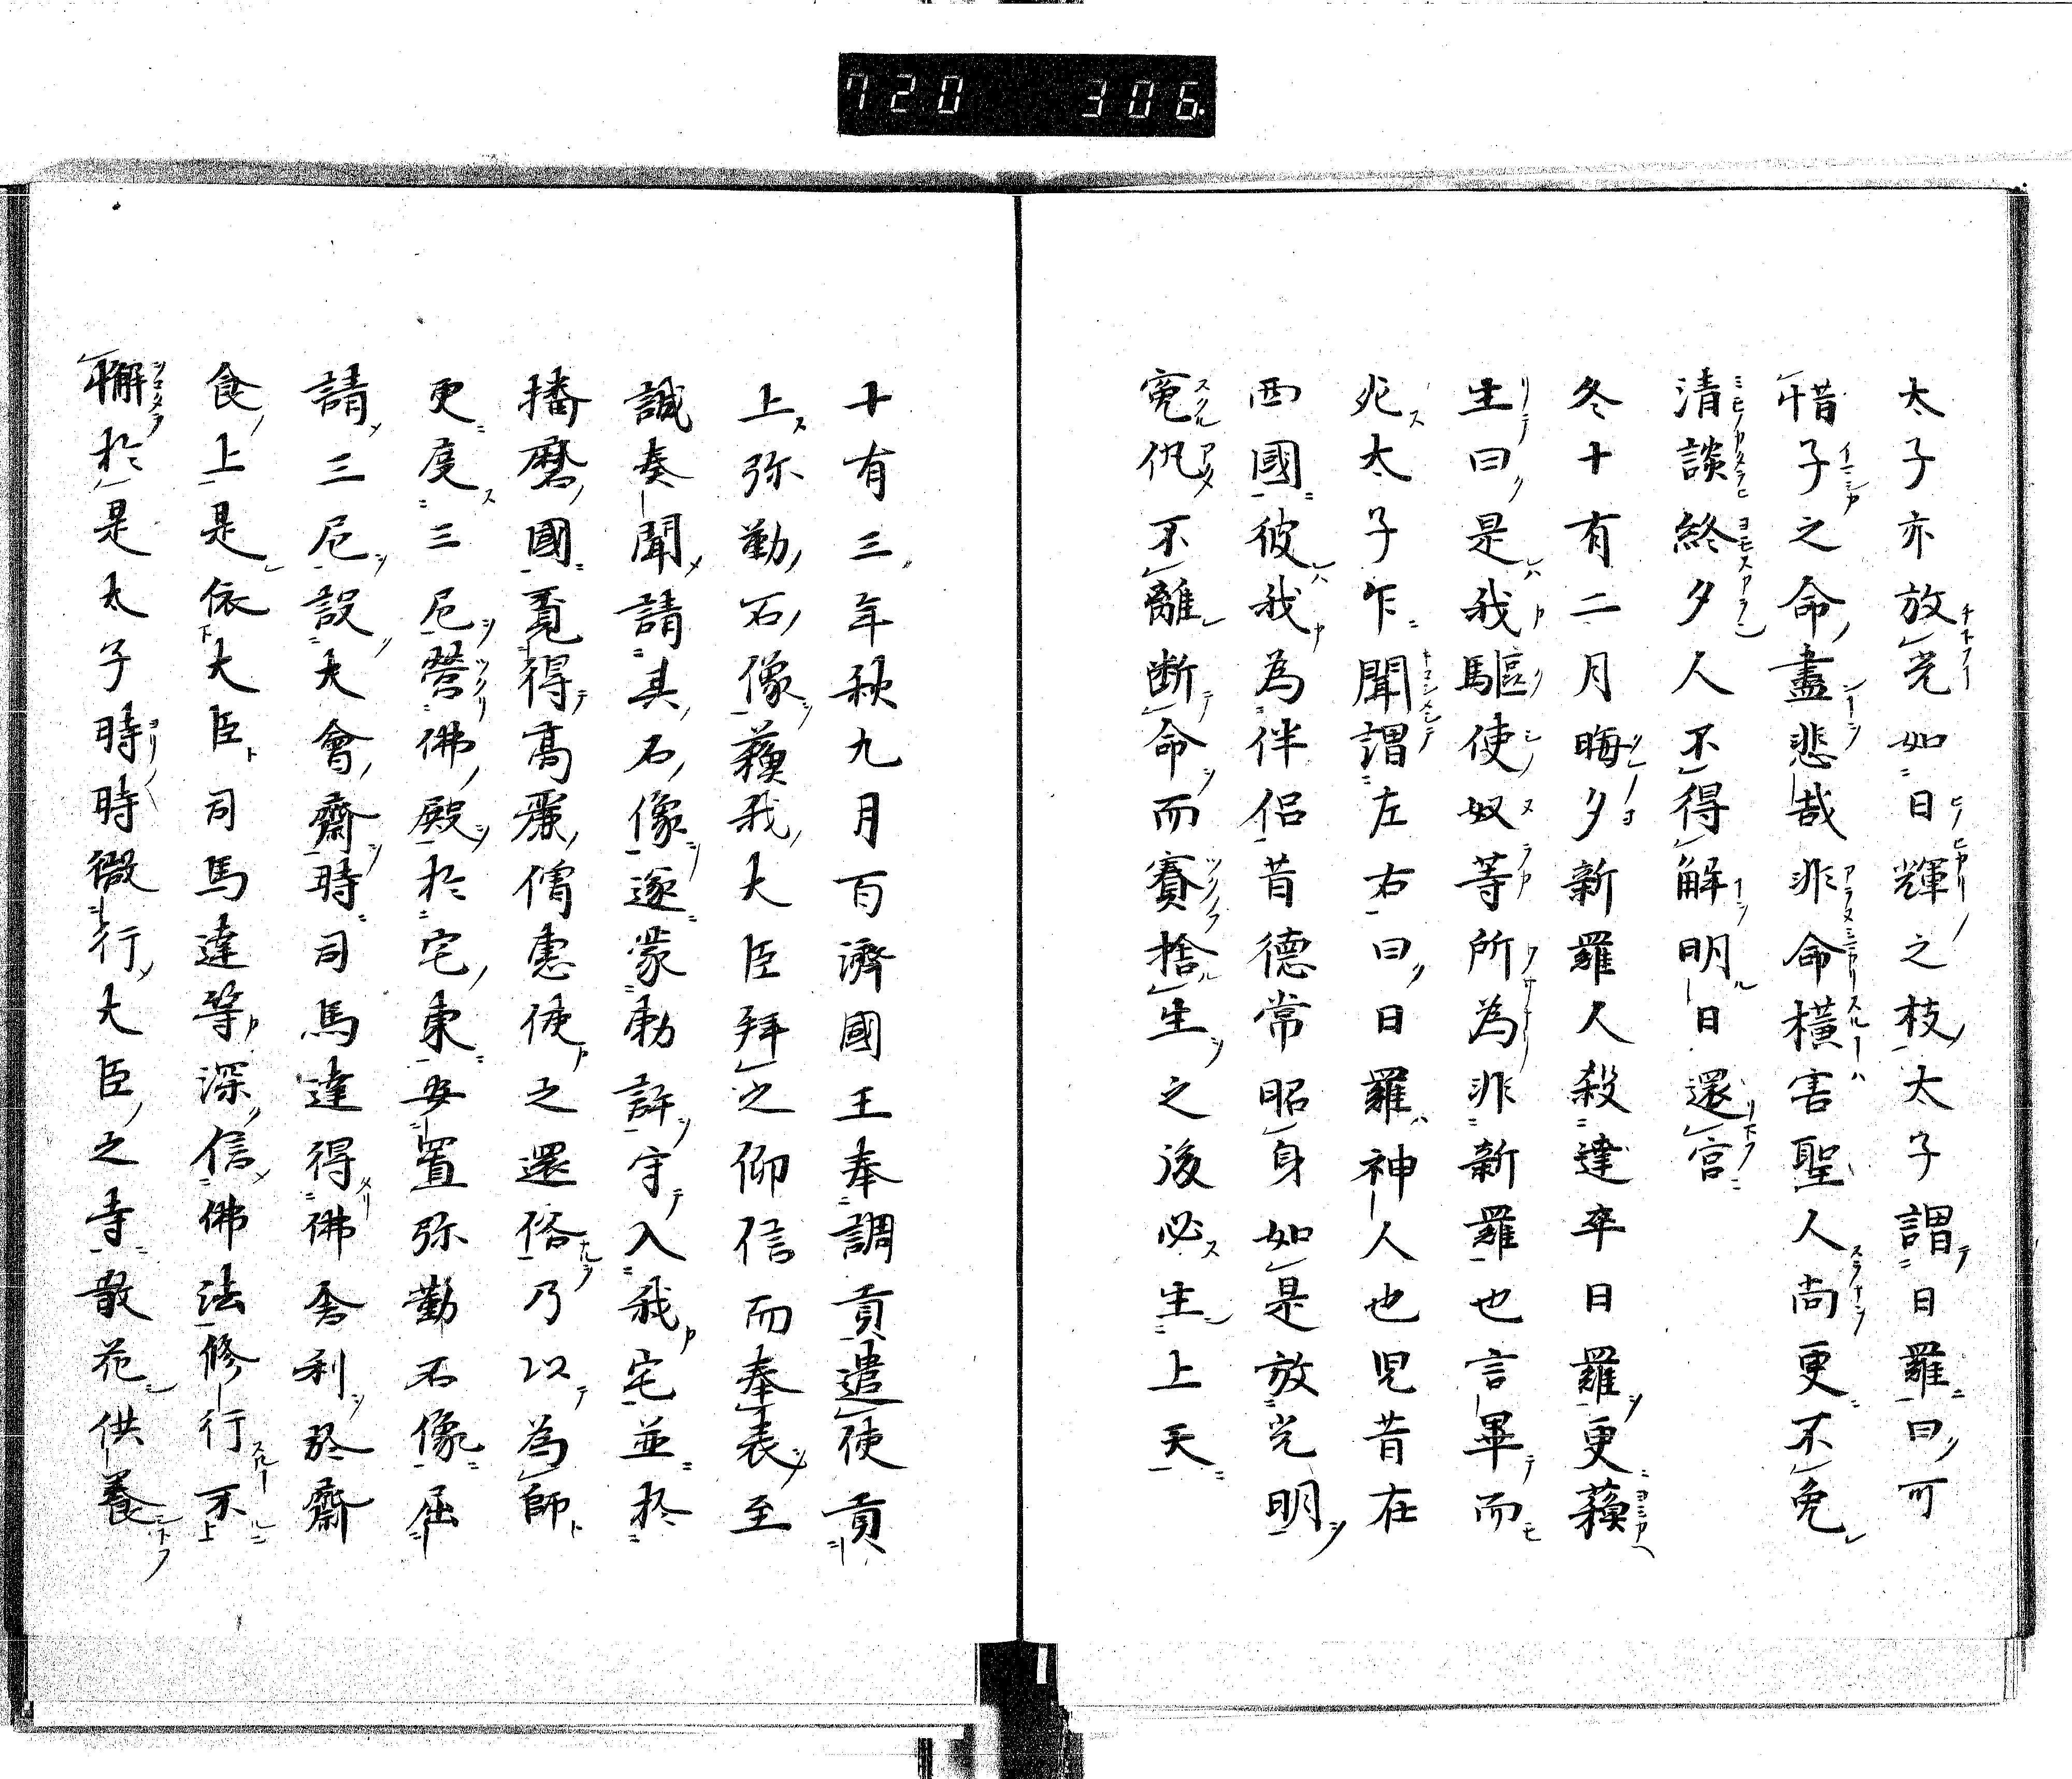 720 306
太子亦放光如日輝之枝太子謂日羅曰可
惜子之命盡悲哉非命橫害聖人尚更不免
清談終夕人不得解明日還宮
冬十有二月晦夕新羅人殺達卒日羅更蘓
生曰是我驅使奴等所為非新羅也言畢而
死太子乍聞謂左右曰日羅神人也児昔在
西國彼我為伴侶昔德常昭身如是放光明
寃仇不離断命而賽捨生之後必生上天
十有三年秋九月百濟國王奉調貢遣使貢
上弥勤石像蘓我大臣拜之仰信而奉表至
誠奏聞請其石像遂蒙勅許守入我宅並於
播磨國覓得高麗僧惠使之還俗乃以為師
更度三尼營佛殿於宅東安置弥勤石像屈
請三尼設大會齋時司馬達得佛舎利於齋
食上是依大臣司馬達等深信佛法修行不
懈於是太子時時微行大臣之寺散花供養